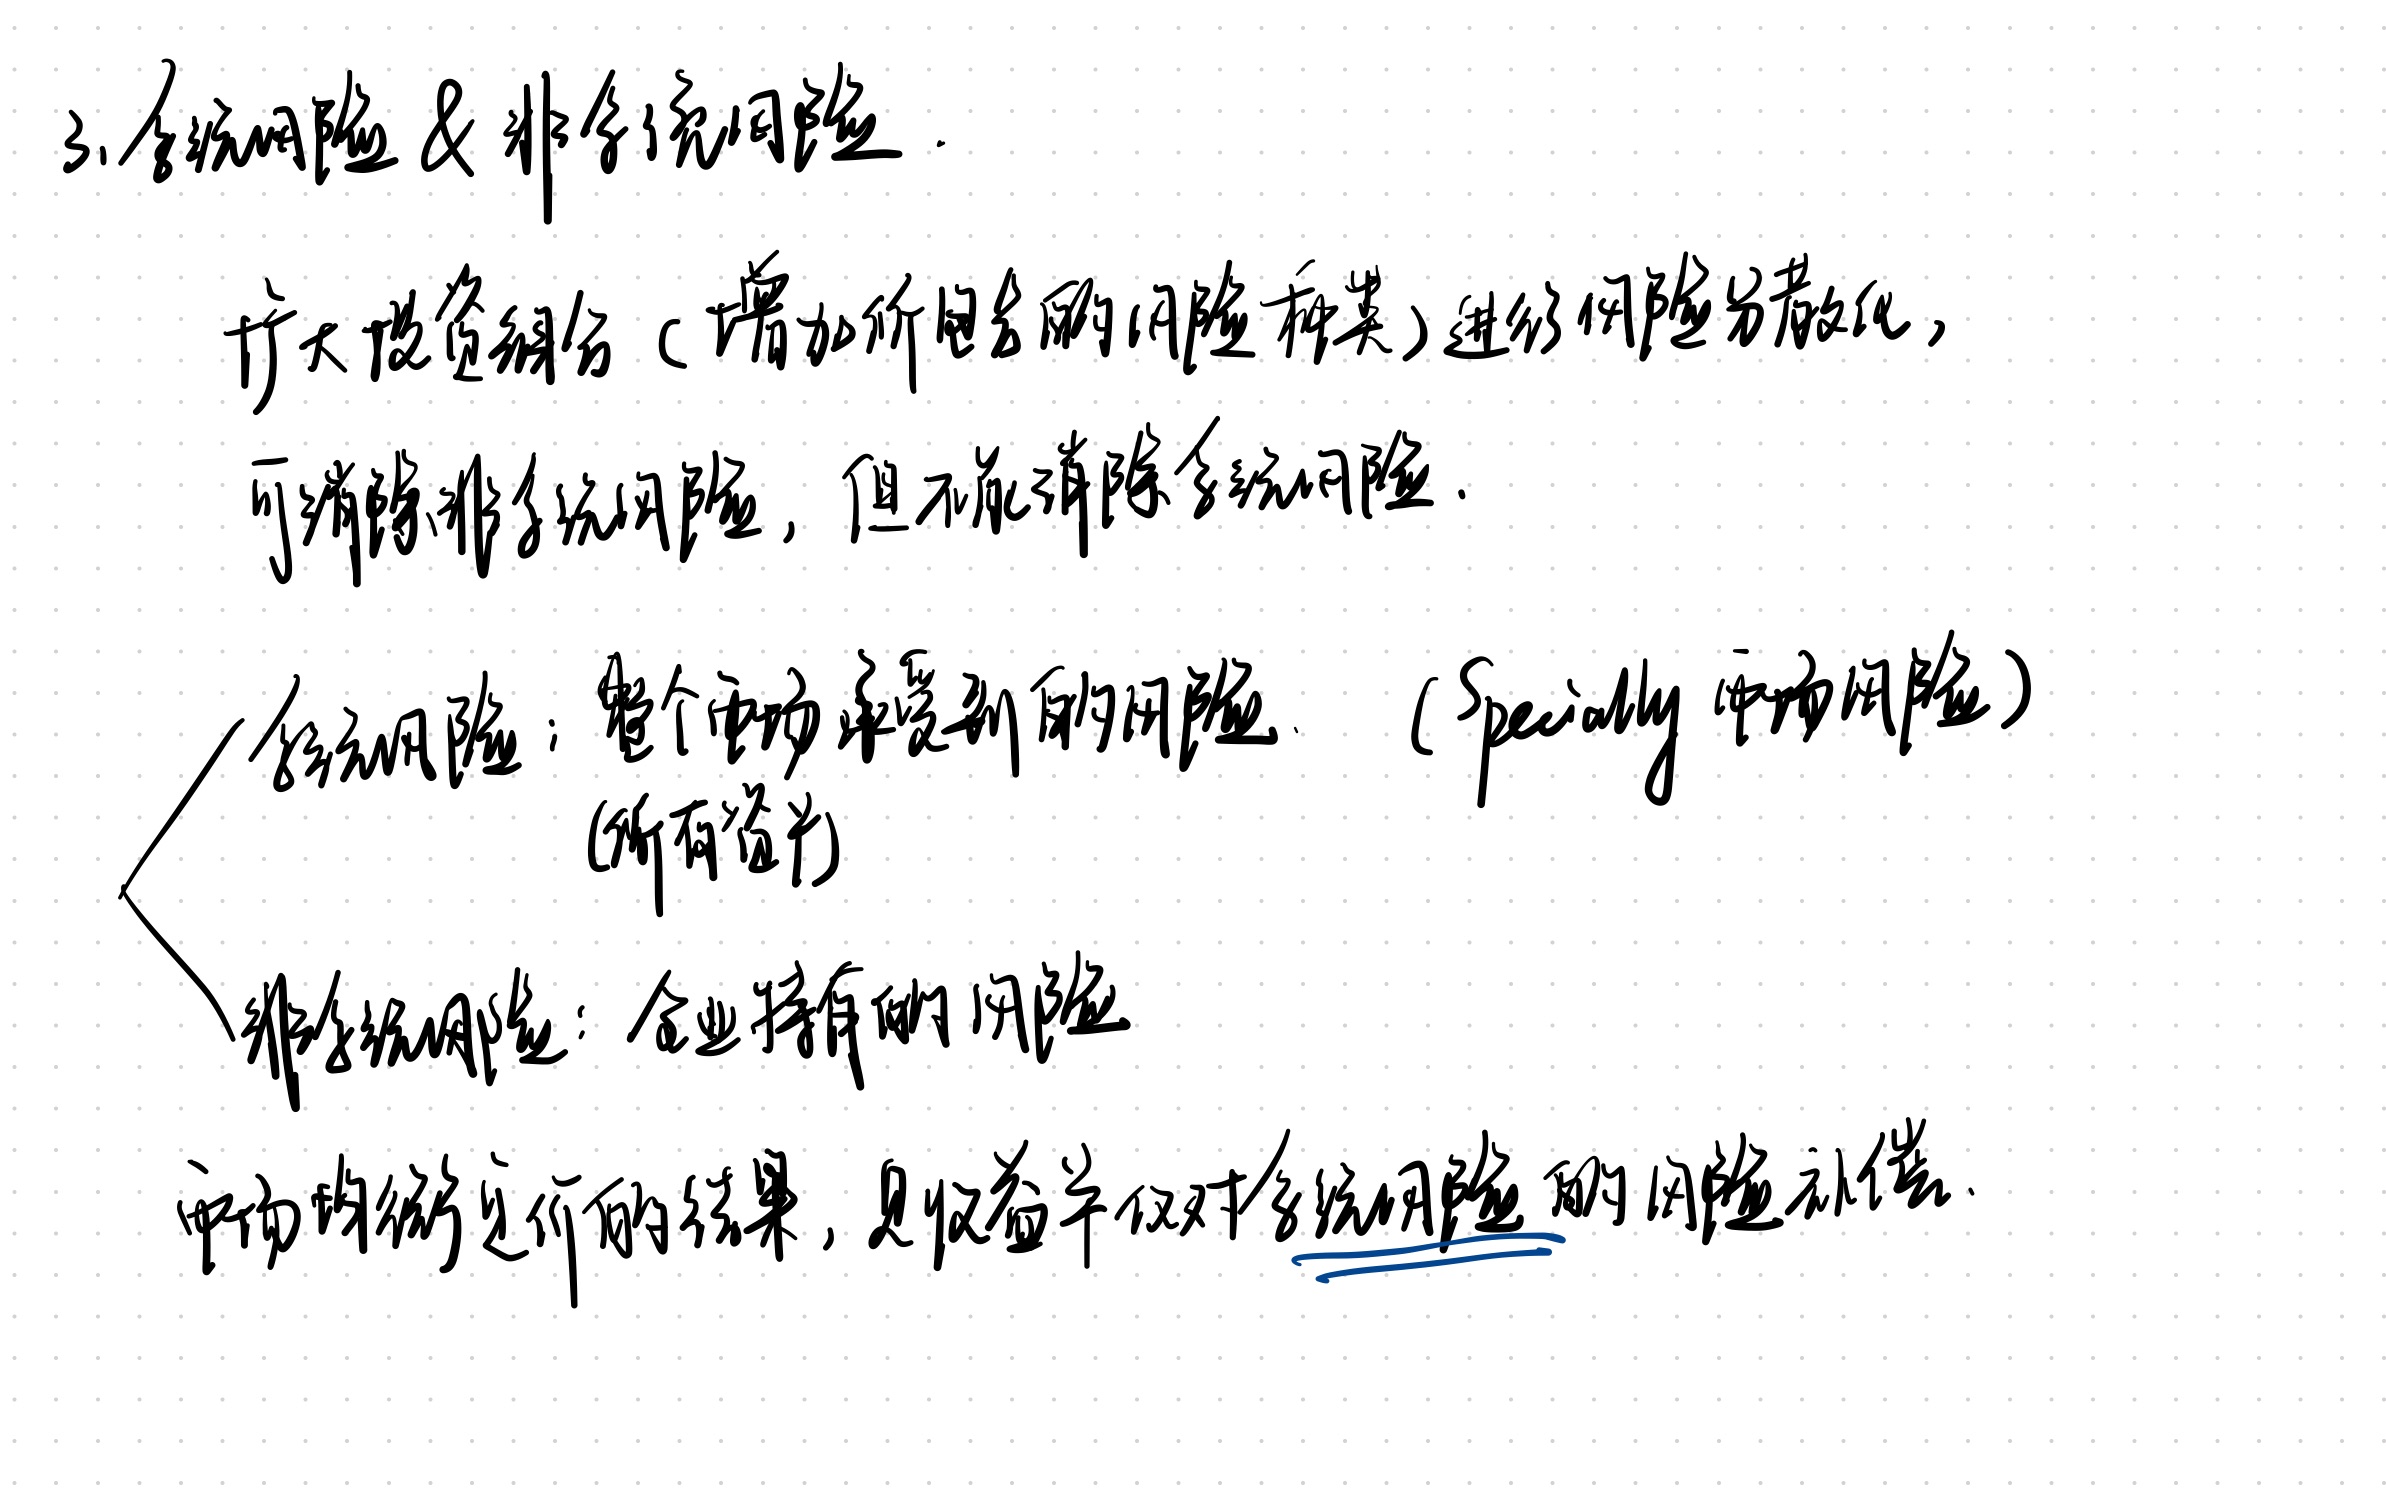 3. 系统风险 & 非系统风险.
扩大投资组合（增加所包含的风险种类）进行风险分散化,
可消除非系统风险, 但不能消除系统风险.
系统风险: 整个市场承受到的风险. (Specially 市场风险)
(所有资产)
非系统风险: 企业特有的风险
市场均衡运行的结果, 是收益率仅对系统风险的风险补偿.